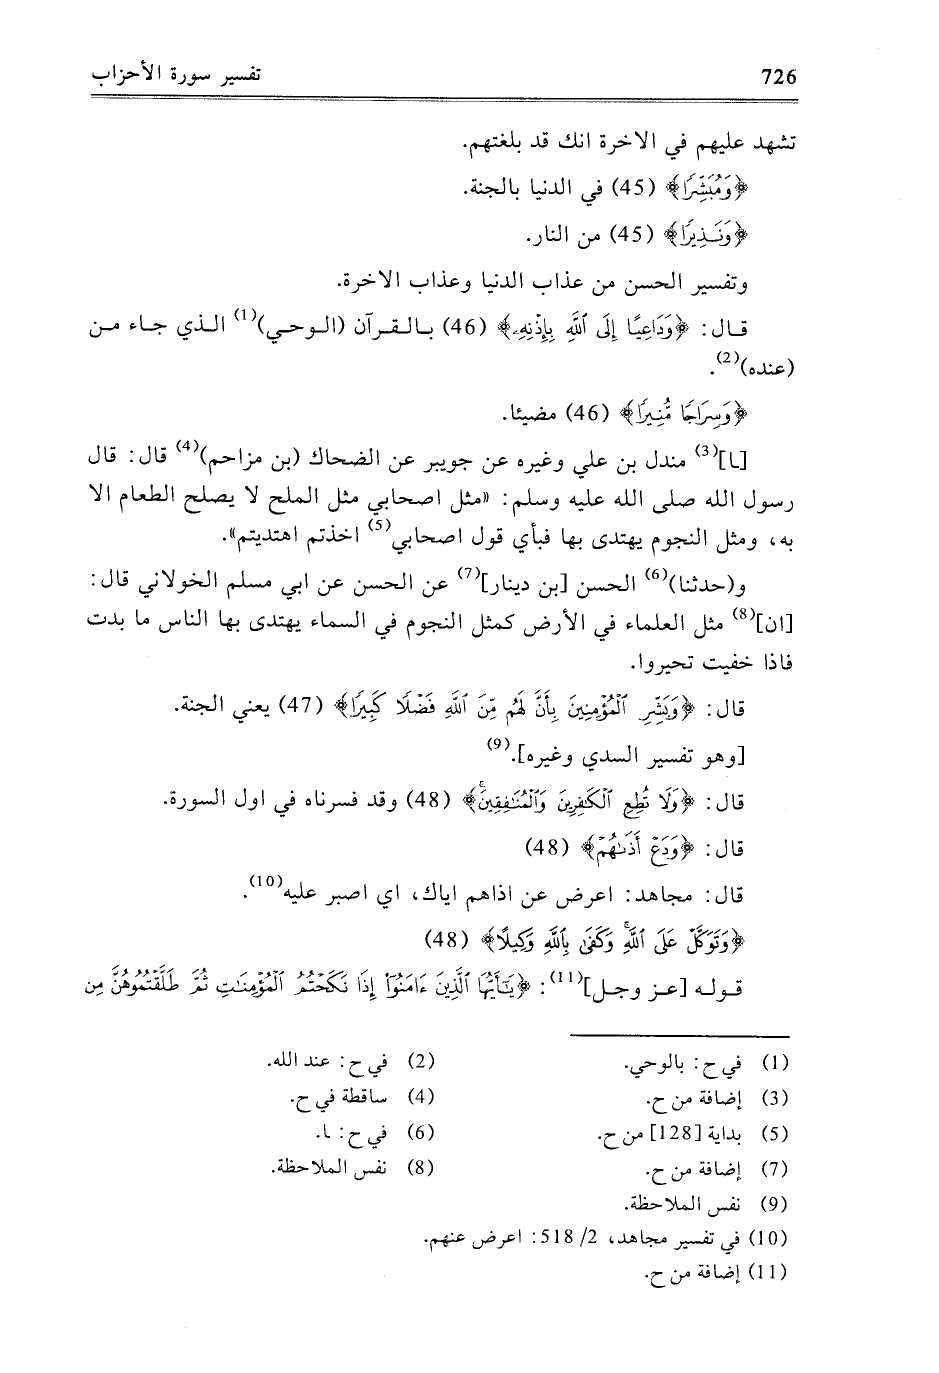 726 تفسير سورة الأحزاب
تشهد عليهم في الاخرة انك قد بلغتهم.
﴿وَمُبَشِّرًا﴾ (45) في الدنيا بالجنة.
﴿وَنَذِيرًا﴾ (45) من النار.
وتفسير الحسن من عذاب الدنيا وعذاب الاخرة.
قال: ﴿وَدَاعِيًا إِلَى ٱللَّهِ بِإِذْنِهِۦ﴾ (46) بالقرآن (الوحي)(1) الذي جاء من
(عنده)(2).
﴿وَسِرَاجًا مُّنِيرًا﴾ (46) مضيئا.
[ـا](3) مندل بن علي وغيره عن جويبر عن الضحاك (بن مزاحم)(4) قال: قال
رسول الله صلى الله عليه وسلم: «مثل اصحابي مثل الملح لا يصلح الطعام الا
به، ومثل النجوم يهتدى بها فبأي قول اصحابي(5) اخذتم اهتديتم».
و(حدثنا)(6) الحسن [بن دينار](7) عن الحسن عن ابي مسلم الخولاني قال:
[ان](8) مثل العلماء في الأرض كمثل النجوم في السماء يهتدى بها الناس ما بدت
فاذا خفيت تحيروا.
قال: ﴿وَبَشِّرِ ٱلْمُؤْمِنِينَ بِأَنَّ لَهُم مِّنَ ٱللَّهِ فَضْلًا كَبِيرًا﴾ (47) يعني الجنة.
[وهو تفسير السدي وغيره].(9)
قال: ﴿وَلَا تُطِعِ ٱلْكَٰفِرِينَ وَٱلْمُنَٰفِقِينَ﴾ (48) وقد فسرناه في اول السورة.
قال: ﴿وَدَعْ أَذَىٰهُمْ﴾ (48)
قال: مجاهد: اعرض عن اذاهم اياك، اي اصبر عليه(10).
﴿وَتَوَكَّلْ عَلَى ٱللَّهِ ۚ وَكَفَىٰ بِٱللَّهِ وَكِيلًا﴾ (48)
قوله [عز وجل](11): ﴿يَٰٓأَيُّهَا ٱلَّذِينَ ءَامَنُوٓا۟ إِذَا نَكَحْتُمُ ٱلْمُؤْمِنَٰتِ ثُمَّ طَلَّقْتُمُوهُنَّ مِن
(1) في ح: بالوحي.
(2) في ح: عند الله.
(3) إضافة من ح.
(4) ساقطة في ح.
(5) بداية [128] من ح.
(6) في ح: ـا.
(7) إضافة من ح.
(8) نفس الملاحظة.
(9) نفس الملاحظة.
(10) في تفسير مجاهد، 2/ 518: اعرض عنهم.
(11) إضافة من ح.